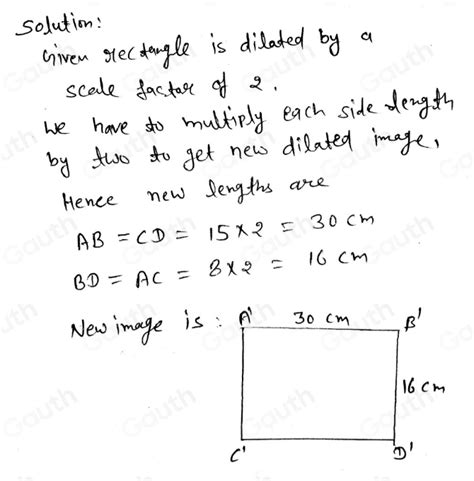 Solution:
Given rectangle is dilated by a
scale factor of 2.
we have to multiply each side length
by two to get new dilated image,
Hence new lengths are
AB = CD = 15×2 = 30 cm
BD = AC = 8×2 = 16 cm
New image is : A' 30 cm B'
16 cm
C' D'
Gauth